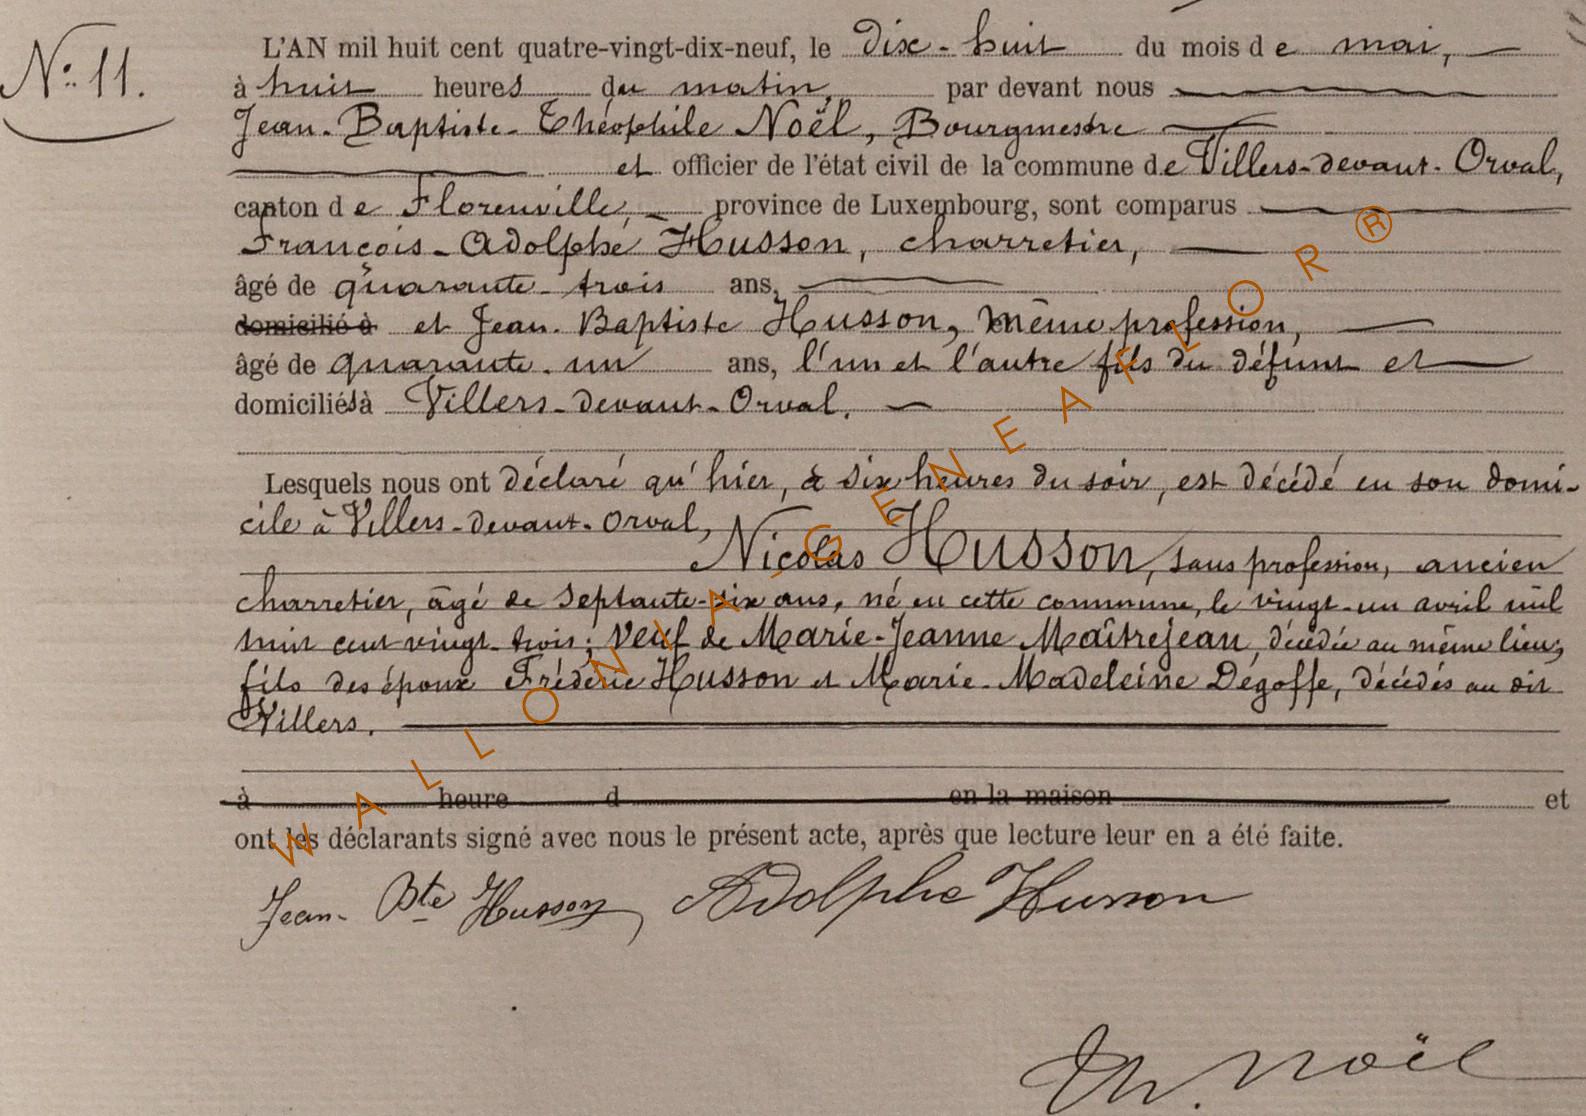 N° 11.
L'AN mil huit cent quatre-vingt-dix-neuf, le dix-huit du mois de mai,
à huit heures du matin, par devant nous
Jean-Baptiste-Théophile Noël, Bourgmestre
et officier de l'état civil de la commune de Villers-devant-Orval,
canton de Florenville, province de Luxembourg, sont comparus
François-Adolphe Husson, charretier,
âgé de quarante-trois ans,
domicilié à et Jean-Baptiste Husson, même profession,
âgé de quarante-un ans, l'un et l'autre fils du défunt et
domiciliés à Villers-devant-Orval.
Lesquels nous ont déclaré qu'hier, à six heures du soir, est décédé en son domi-
cile à Villers-devant-Orval,
Nicolas Husson, sans profession, ancien
charretier, âgé de septante-six ans, né en cette commune, le vingt-un avril mil
huit cent vingt-trois; veuf de Marie-Jeanne Maîtrejean, décédée au même lieu,
fils des époux Fréderic Husson et Marie-Madeleine Dégoffe, décédés au dit
Villers.
à heure d en la maison et
ont les déclarants signé avec nous le présent acte, après que lecture leur en a été faite.
Jean-Bte Husson Adolphe Husson
Th. Noël
WALLONIA-GENEAFLOR®